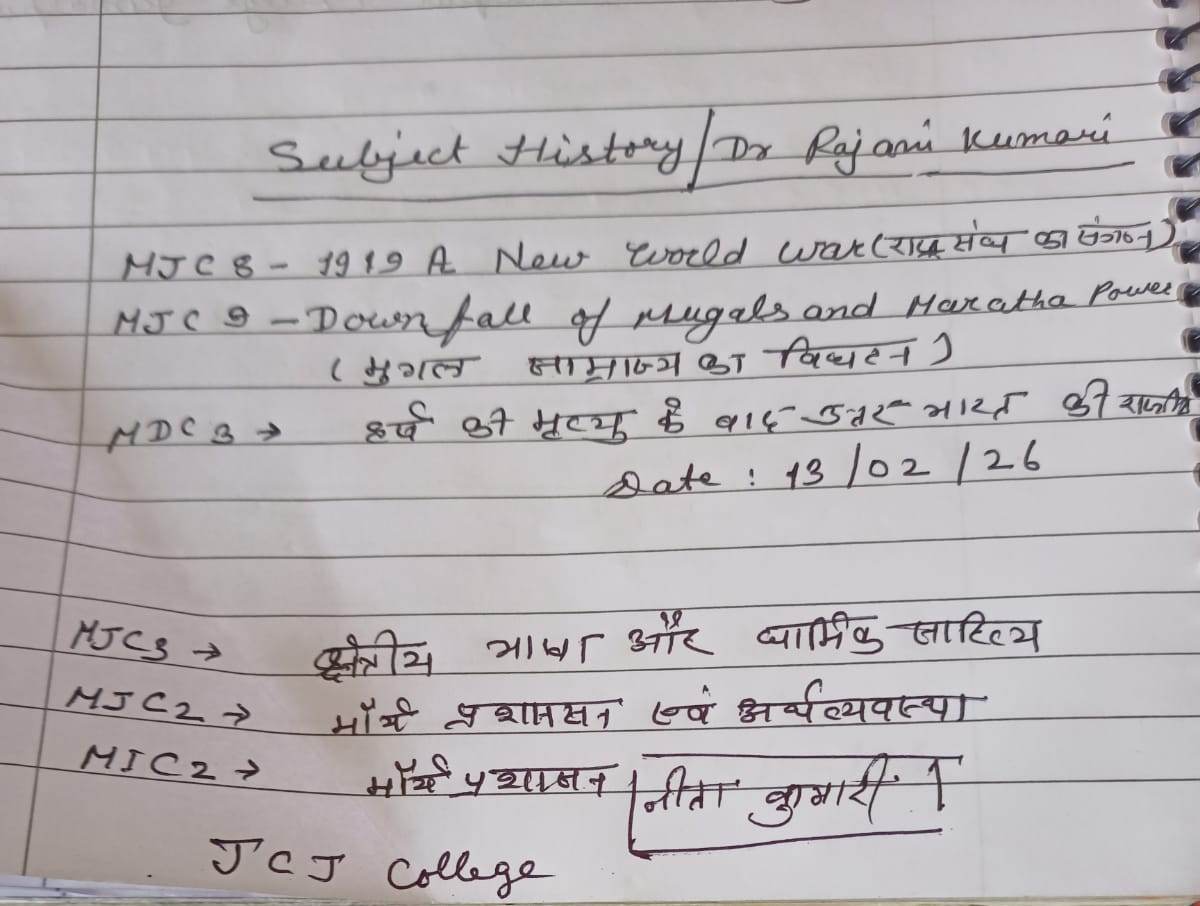 Subject History/Dr Rajani Kumari
MJC 8 - 1919 A New World War (राष्ट्र संघ का संगठन)
MJC 9 - Downfall of Mugals and Maratha Power
(मुगल साम्राज्य का विघटन)
MDC 3 → हर्ष की मृत्यु के बाद उत्तर भारत की
Date : 13/02/26
MJC3 → क्षेत्रीय भाषा और धार्मिक साहित्य
MJC2 → मौर्य प्रशासन एवं अर्थव्यवस्था
MIC2 → मौर्य प्रशासन नीता कुमारी
JCJ College